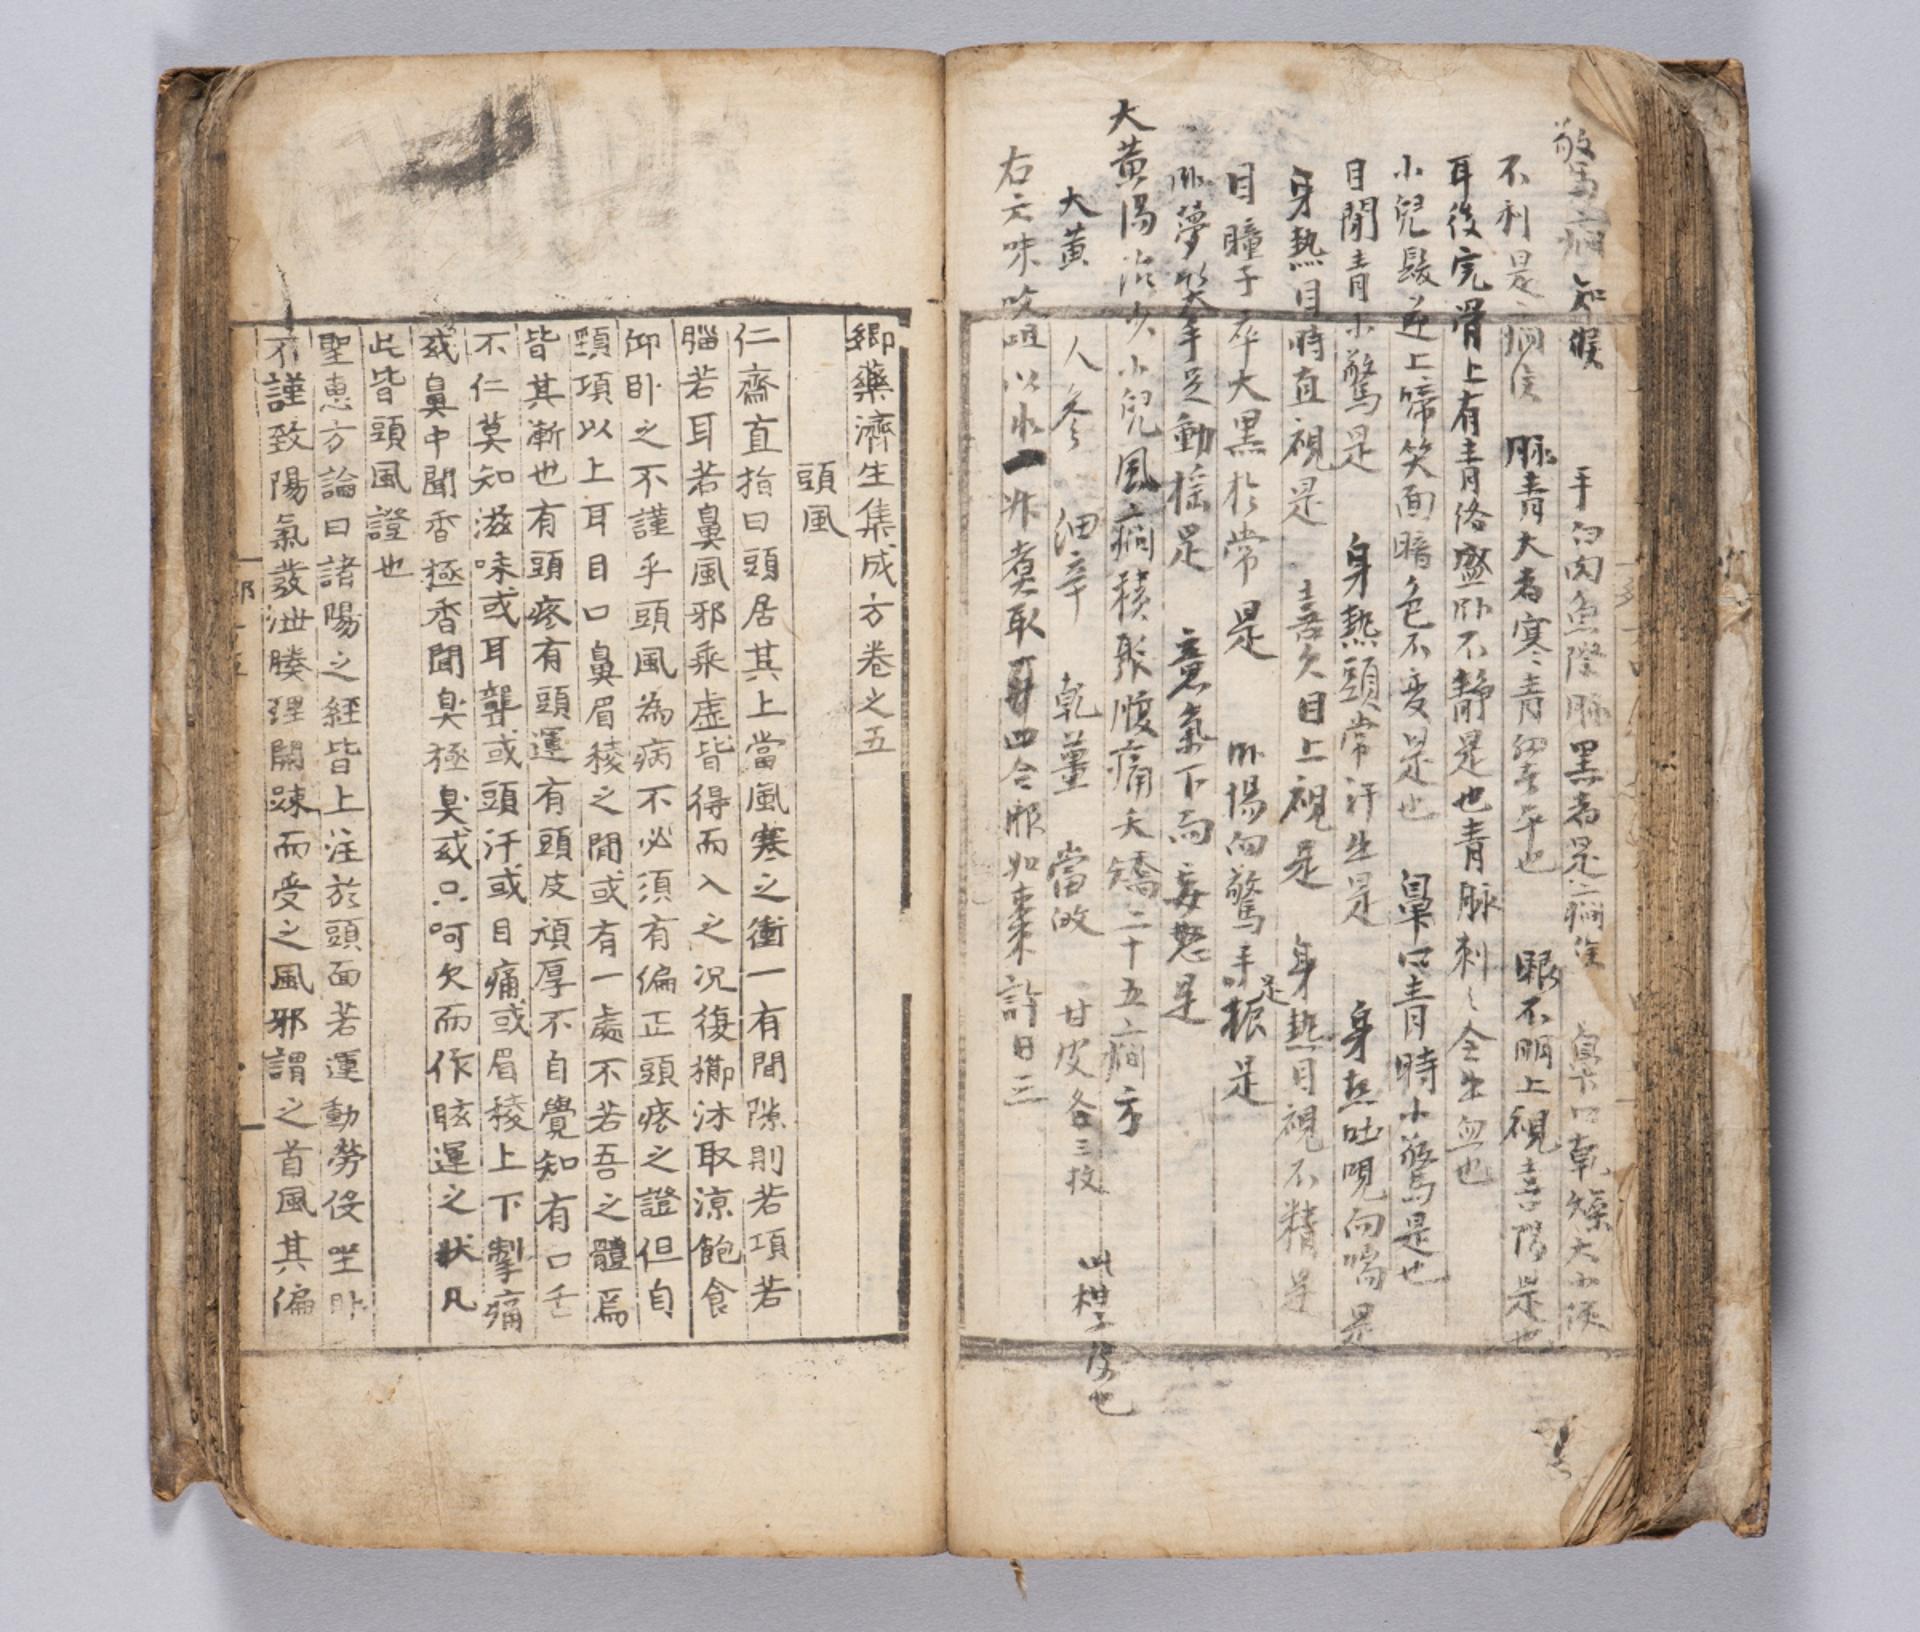 驚癇知候 手白肉魚際脉黑者是癇候 鼻口乾燥大小便
不利是癇候 脉青大者寒〻青細者平也 眼不明上視喜陽是也
耳後完骨上有青絡盛卧不靜是也青脉刺〻令出血也
小兒髮逆上啼笑面暗色不变是也 鼻口青時小驚是也
目閉青小驚是 身熱頭常汗出是 身熱吐哯向喘是
身熱目時直視是 喜欠目上視是 身熱目視不精是
目瞳子卒大黑於常是 卧惕向驚手足振是
卧夢笑手足動摇是 意氣下而妄怒是
大黄湯治少小兒風癇積聚腹痛夭矯二十五癇方
大黄 人參 細辛 乾薑 當歸 甘皮各三枚 此柑子皮也
右六味㕮咀以水一升煮取 四合服如棗許日三
鄉藥濟生集成方卷之五
頭風
仁齋直指曰頭居其上當風寒之衝一有間隙則若項若
腦若耳若鼻風邪乘虛皆得而入之况復櫛沐取凉飽食
仰卧之不謹乎頭風為病不必須有偏正頭疼之證但自
頸項以上耳目口鼻眉稜之間或有一處不若吾之體焉
皆其漸也有頭疼有頭運有頭皮頑厚不自覺知有口舌
不仁莫知滋味或耳聾或頭汗或目痛或眉稜上下掣痛
或鼻中聞香極香聞臭極臭或只呵欠而作眩運之狀凡
此皆頭風證也
聖惠方論曰諸陽之經皆上注於頭面若運動勞役坐卧
不謹致陽氣發泄腠理開踈而受之風邪謂之首風其偏